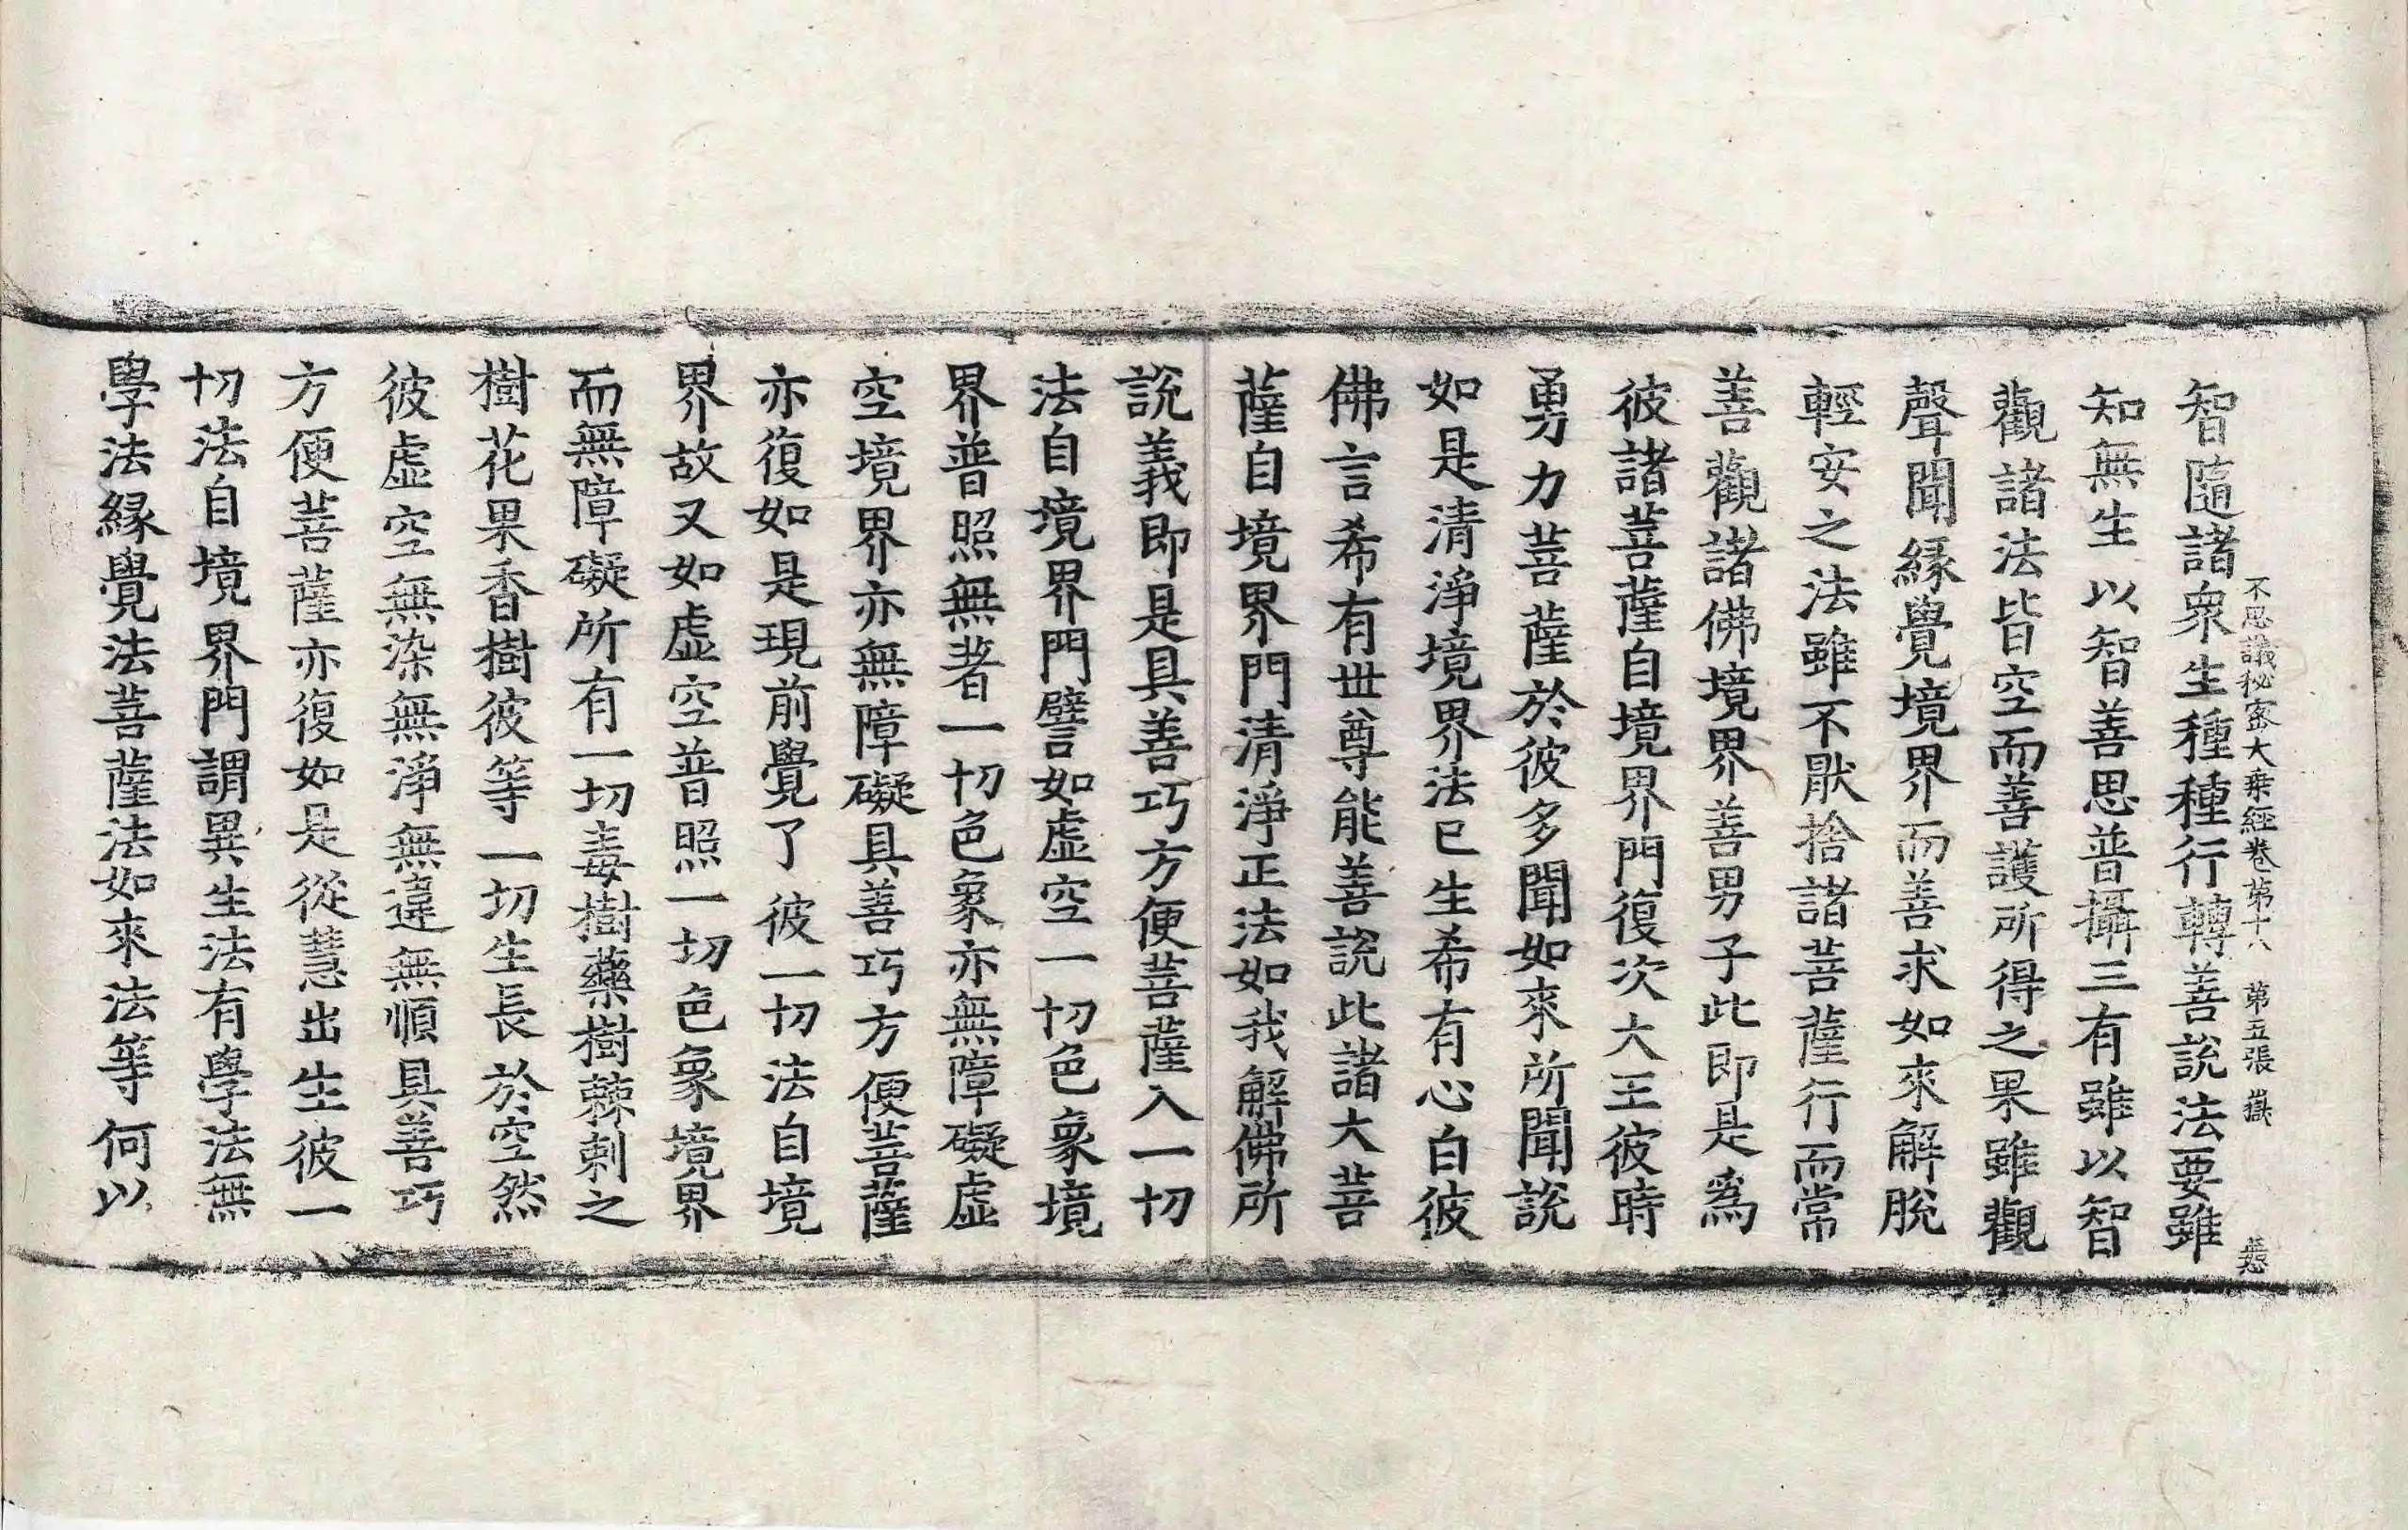 不思議秘密大乗經卷第十八　第五張
智隨諸衆生種種行轉善說法要雖
知無生以智善思普攝三有雖以智
觀諸法皆空而善護所得之果雖觀
聲聞緣覺境界而善求如來解脫
輕安之法雖不猒捨諸菩薩行而常
善觀諸佛境界善男子此即是爲
彼諸菩薩自境界門復次大王彼時
勇力菩薩於彼多聞如來所聞說
如是清淨境界法已生希有心白彼
佛言希有世尊能善說此諸大菩
薩自境界門清淨正法如我解佛所
說義即是具善巧方便菩薩入一切
法自境界門譬如虛空一切色象境
界普照無著一切色象亦無障礙虛
空境界亦無障礙具善巧方便菩薩
亦復如是現前覺了彼一切法自境
界故又如虛空普照一切色象境界
而無障礙所有一切毒樹藥樹棘刺之
樹花果香樹彼等一切生長於空然
彼虛空無染無淨無違無順具善巧
方便菩薩亦復如是從慧出生彼一
切法自境界門謂異生法有學法無
學法緣覺法菩薩法如來法等何以